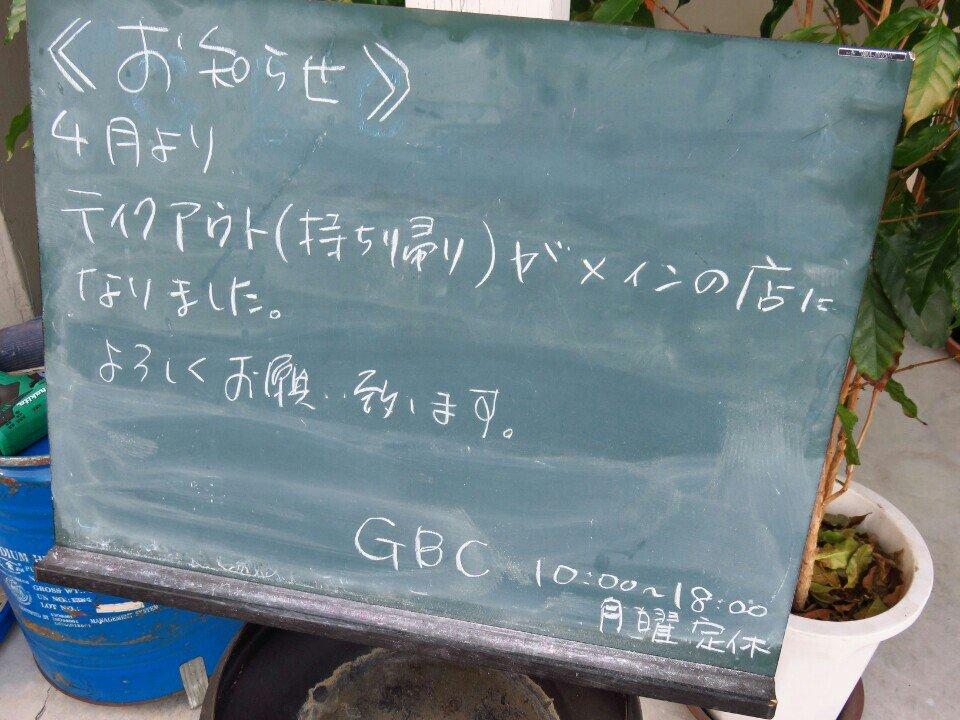 《お知らせ》
4月より
テイクアウト(持ち帰り)がメインの店に
なりました。
よろしくお願い致します。
GBC 10:00~18:00
月曜定休
GROSS WT.
UN NO.
LOT NO.:
MANAGEMENT SYSTEM
makita